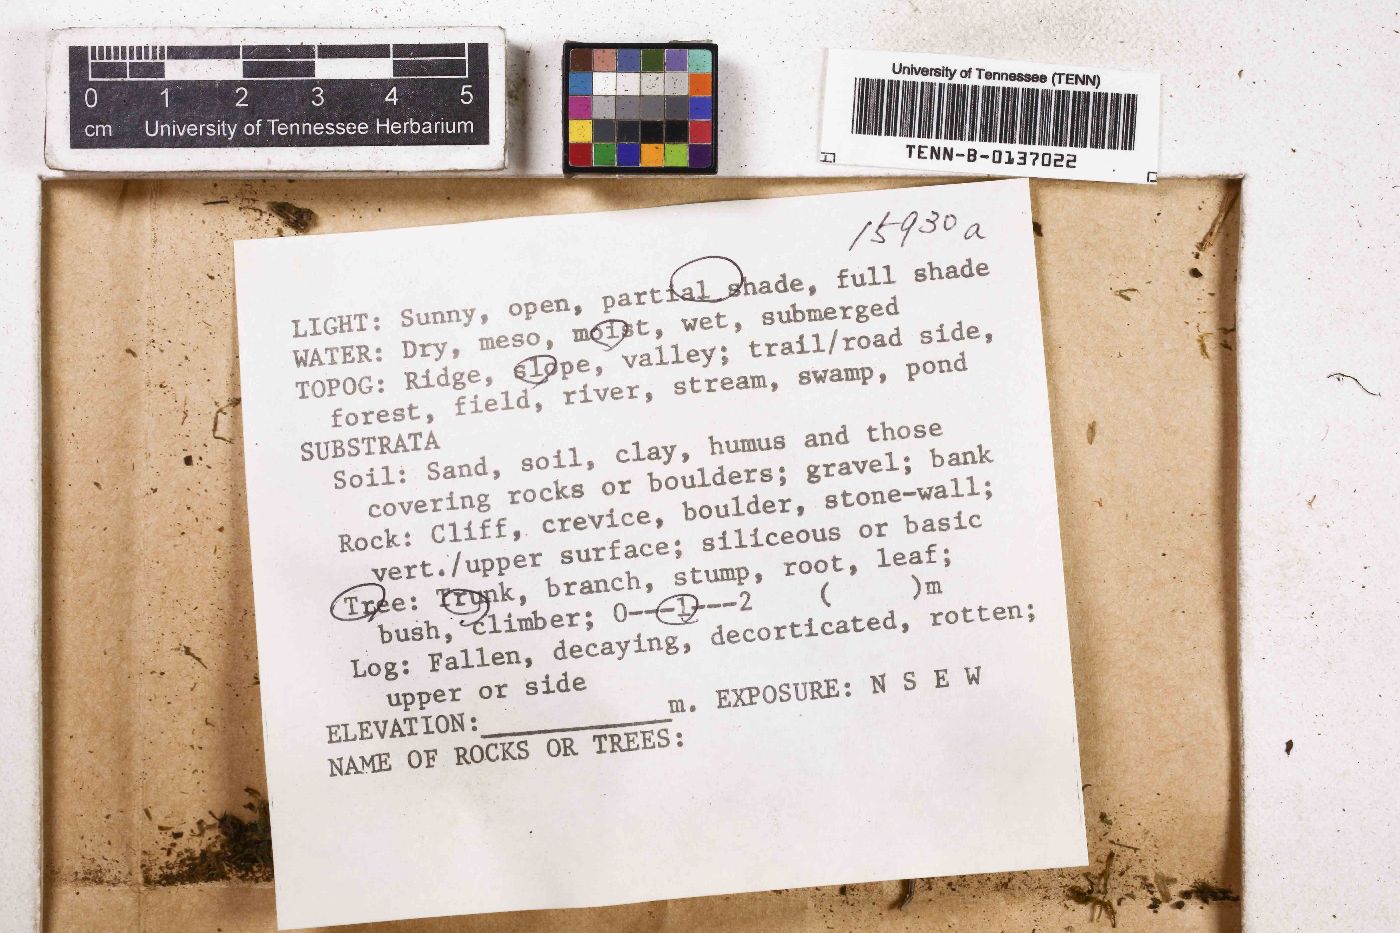 0 1 2 3 4 5
cm University of Tennessee Herbarium
University of Tennessee (TENN)
TENN-B-0137022
15930a
LIGHT: Sunny, open, partial shade, full shade
WATER: Dry, meso, moist, wet, submerged
TOPOG: Ridge, slope, valley; trail/road side,
forest, field, river, stream, swamp, pond
SUBSTRATA
Soil: Sand, soil, clay, humus and those
covering rocks or boulders; gravel; bank
Rock: Cliff, crevice, boulder, stone-wall;
vert./upper surface; siliceous or basic
Tree: Trunk, branch, stump, root, leaf;
bush, climber; 0---1---2 ( )m
Log: Fallen, decaying, decorticated, rotten;
upper or side
ELEVATION:__________m. EXPOSURE: N S E W
NAME OF ROCKS OR TREES: